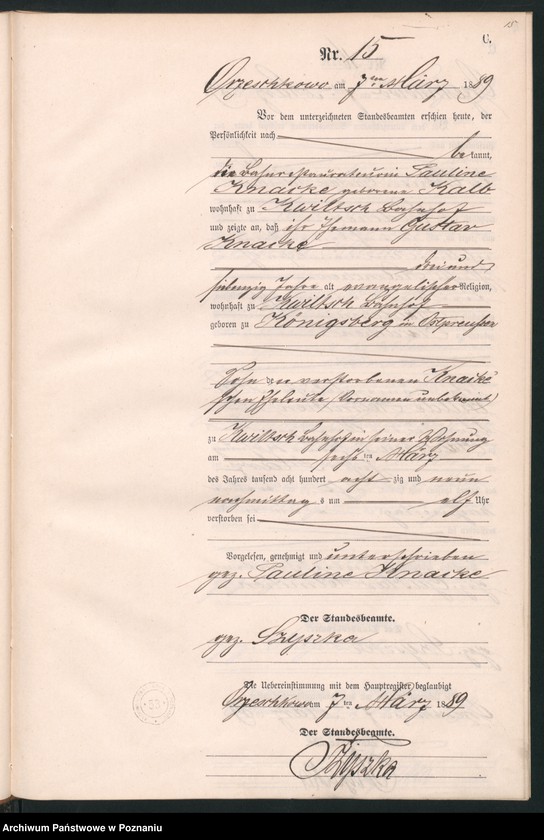 15
C.
Nr. 15
Orzeschkowo am 7ten März 1889
Vor dem unterzeichneten Standesbeamten erschien heute, der
Persönlichkeit nach
be kannt,
die Bahnrestaurateurin Pauline
Knacke geborene Kalb
wohnhaft zu Kwiltsch Bahnhof
und zeigte an, daß ihr Ehemann Gustav
Knacke
drei und
siebenzig Jahre alt, evangelischer Religion,
wohnhaft zu Kwiltsch Bahnhof
geboren zu Königsberg in Ostpreußen
Sohn der verstorbenen Knacke
schen Eheleute, (Vornamen unbekannt)
zu Kwiltsch Bahnhof in seiner Wohnung
am sechsten März
des Jahres tausend acht hundert achtzig und neun
nachmittags um elf Uhr
verstorben sei
Vorgelesen, genehmigt und unterschrieben
gez. Pauline Knacke
Der Standesbeamte.
gez. Szyszka
Die Uebereinstimmung mit dem Hauptregister beglaubigt
Orzeschkowo am 7ten März 1889
Der Standesbeamte.
Szyszka
Archiwum Państwowe w Poznaniu